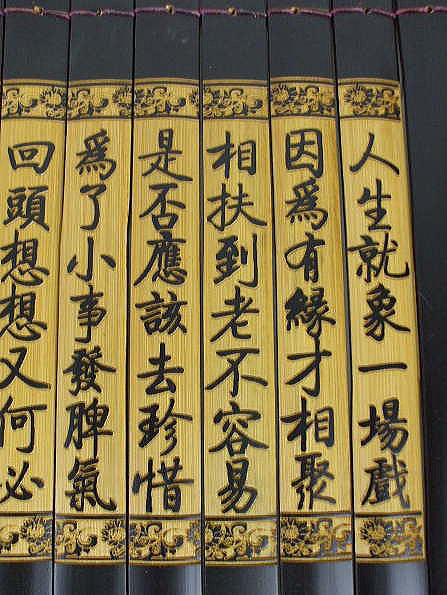 人生就象一場戲
因爲有緣才相聚
相扶到老不容易
是否應該去珍惜
爲了小事發脾氣
回頭想想又何必